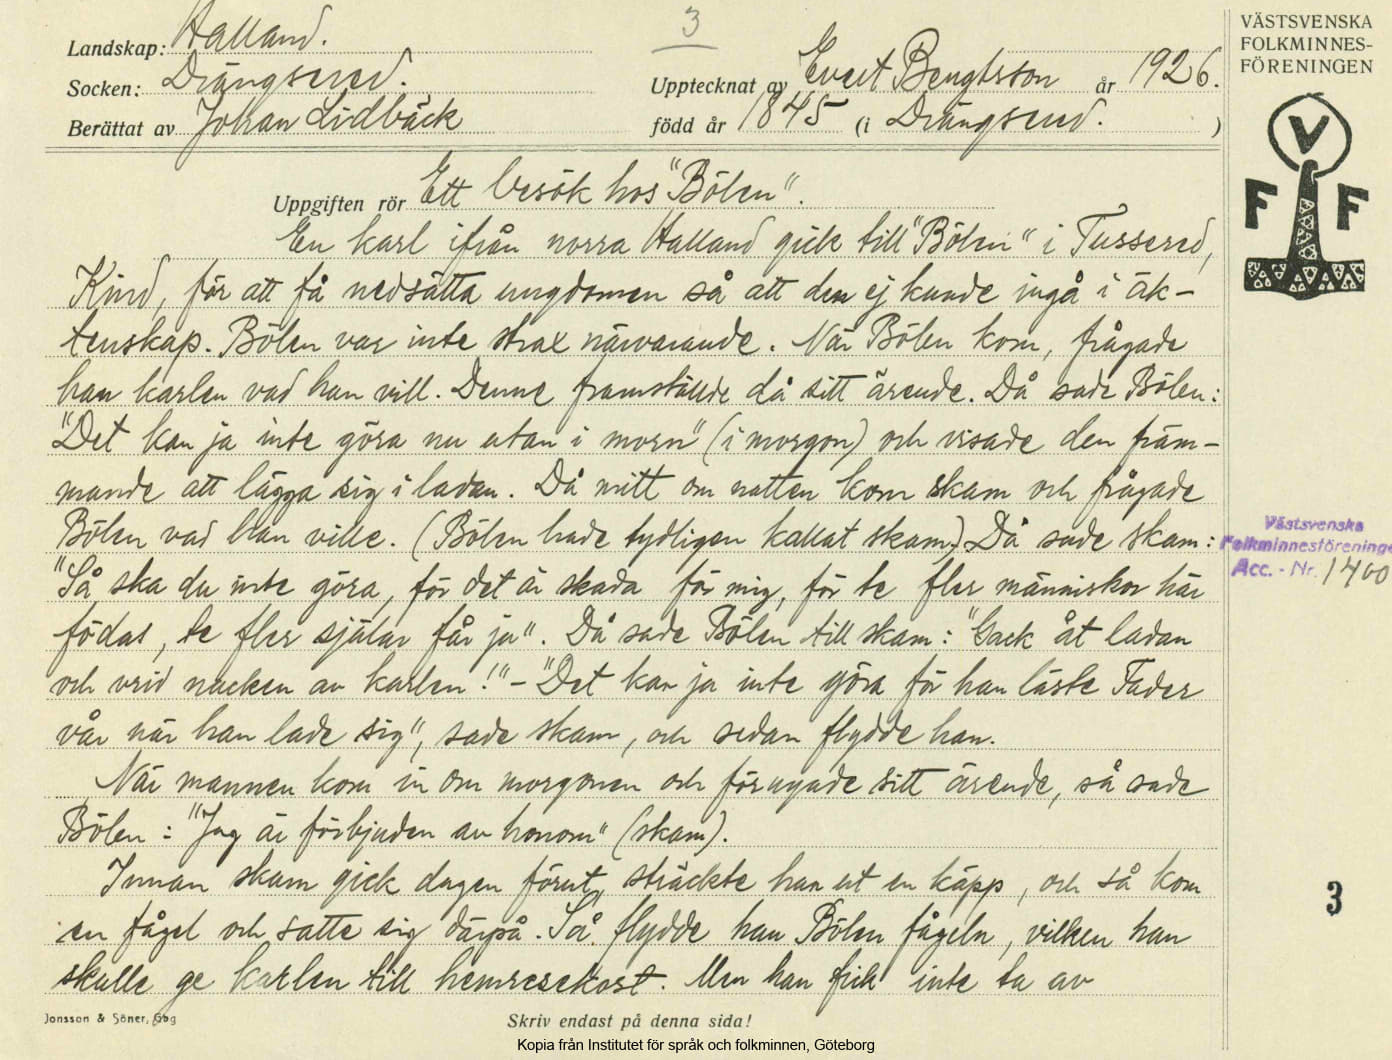 3
Landskap: Halland.
Socken: Drängsered.
Upptecknat av Evert Bengtsson år 1926.
Berättat av Johan Lidbäck
född år 1845 (i Drängsered. )
VÄSTSVENSKA
FOLKMINNES-
FÖRENINGEN
V
F F
Uppgiften rör Ett besök hos "Bölen".
En karl ifrån norra Halland gick till "Bölen" i Tussered,
Kind, för att få nedsätta ungdomen så att den ej kunde ingå i äk-
tenskap. Bölen var inte strax närvarande. När Bölen kom, frågade
han karlen vad han vill. Denne framställde då sitt ärende. Då sade Bölen:
"Det kan ja inte göra nu utan i morn" (i morgon) och visade den främ-
mande att lägga sig i ladan. Då mitt om natten kom skam och frågade
Bölen vad han ville. (Bölen hade tydligen kallat skam.) Då sade skam:
"Så ska du inte göra, för det är skada för mig, för te fler människor här
födas, te fler själar får ja". Då sade Bölen till skam: "Gack åt ladan
och vrid nacken av karlen!" - "Det kan ja inte göra för han läste Fader
vår när han lade sig", sade skam, och sedan flydde han.
När mannen kom in om morgonen och förnyade sitt ärende, så sade
Bölen: "Jag är förbjuden av honom" (skam).
Innan skam gick dagen förut, sträckte han ut en käpp, och så kom
en fågel och satte sig därpå. Så flydde han Bölen fågeln, vilken han
skulle ge karlen till hemresekost. Men han fick inte ta av
Västsvenska
Folkminnesföreninge
Acc. - Nr. 1400
3
Jonsson & Söner, Gbg
Skriv endast på denna sida!
Kopia från Institutet för språk och folkminnen, Göteborg